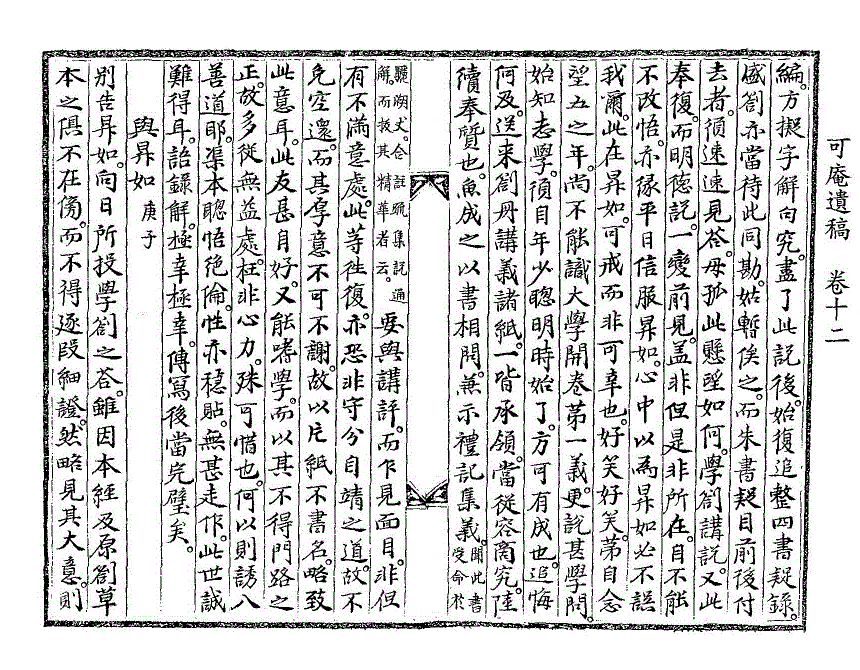 可庵遺稿　卷十二
編方擬字解句究盡了此說後始復追整四書疑錄
盛劄亦當待此同勘姑暫俟之而朱書疑目前後付
去者須速速見答毋孤此懸望如何學劄講說又此
奉復而明德說一變前見盖非但是非所在自不能
不改悟亦緣平日信服昇如心中以為昇如必不誤
我爾此在昇如可戒而非可幸也好笑好笑第自念
望五之年尚不能識大學開卷第一義更說甚學問
始知志學須自年少聰明時始了方可有成也追悔
何及送来劄毋講義諸紙一皆承領當從容商究陸
續奉質也魚成之以書相問兼示禮記集義聞此書受命於
驪湖丈合註疏集說通解而掇其精華者云要與講評而乍見面目非但
有不滿意處此等往復亦恐非守分自靖之道故不
免空還而其厚意不可不謝故以片紙不書名略致
此意耳此友甚自好又能嗜學而以其不得門路之
正故多從無益處枉非心力殊可惜也何以則誘入
善道耶渠本聰悟絶倫性亦穩貼無甚走作此世誠
難得耳詒錄解極幸極幸傳寫後當完璧矣
與昇如庚子
別告昇如向日所投學劄之答雖因本經及原劄草
本之俱不在傍而不得逐段細證然略見其大意則